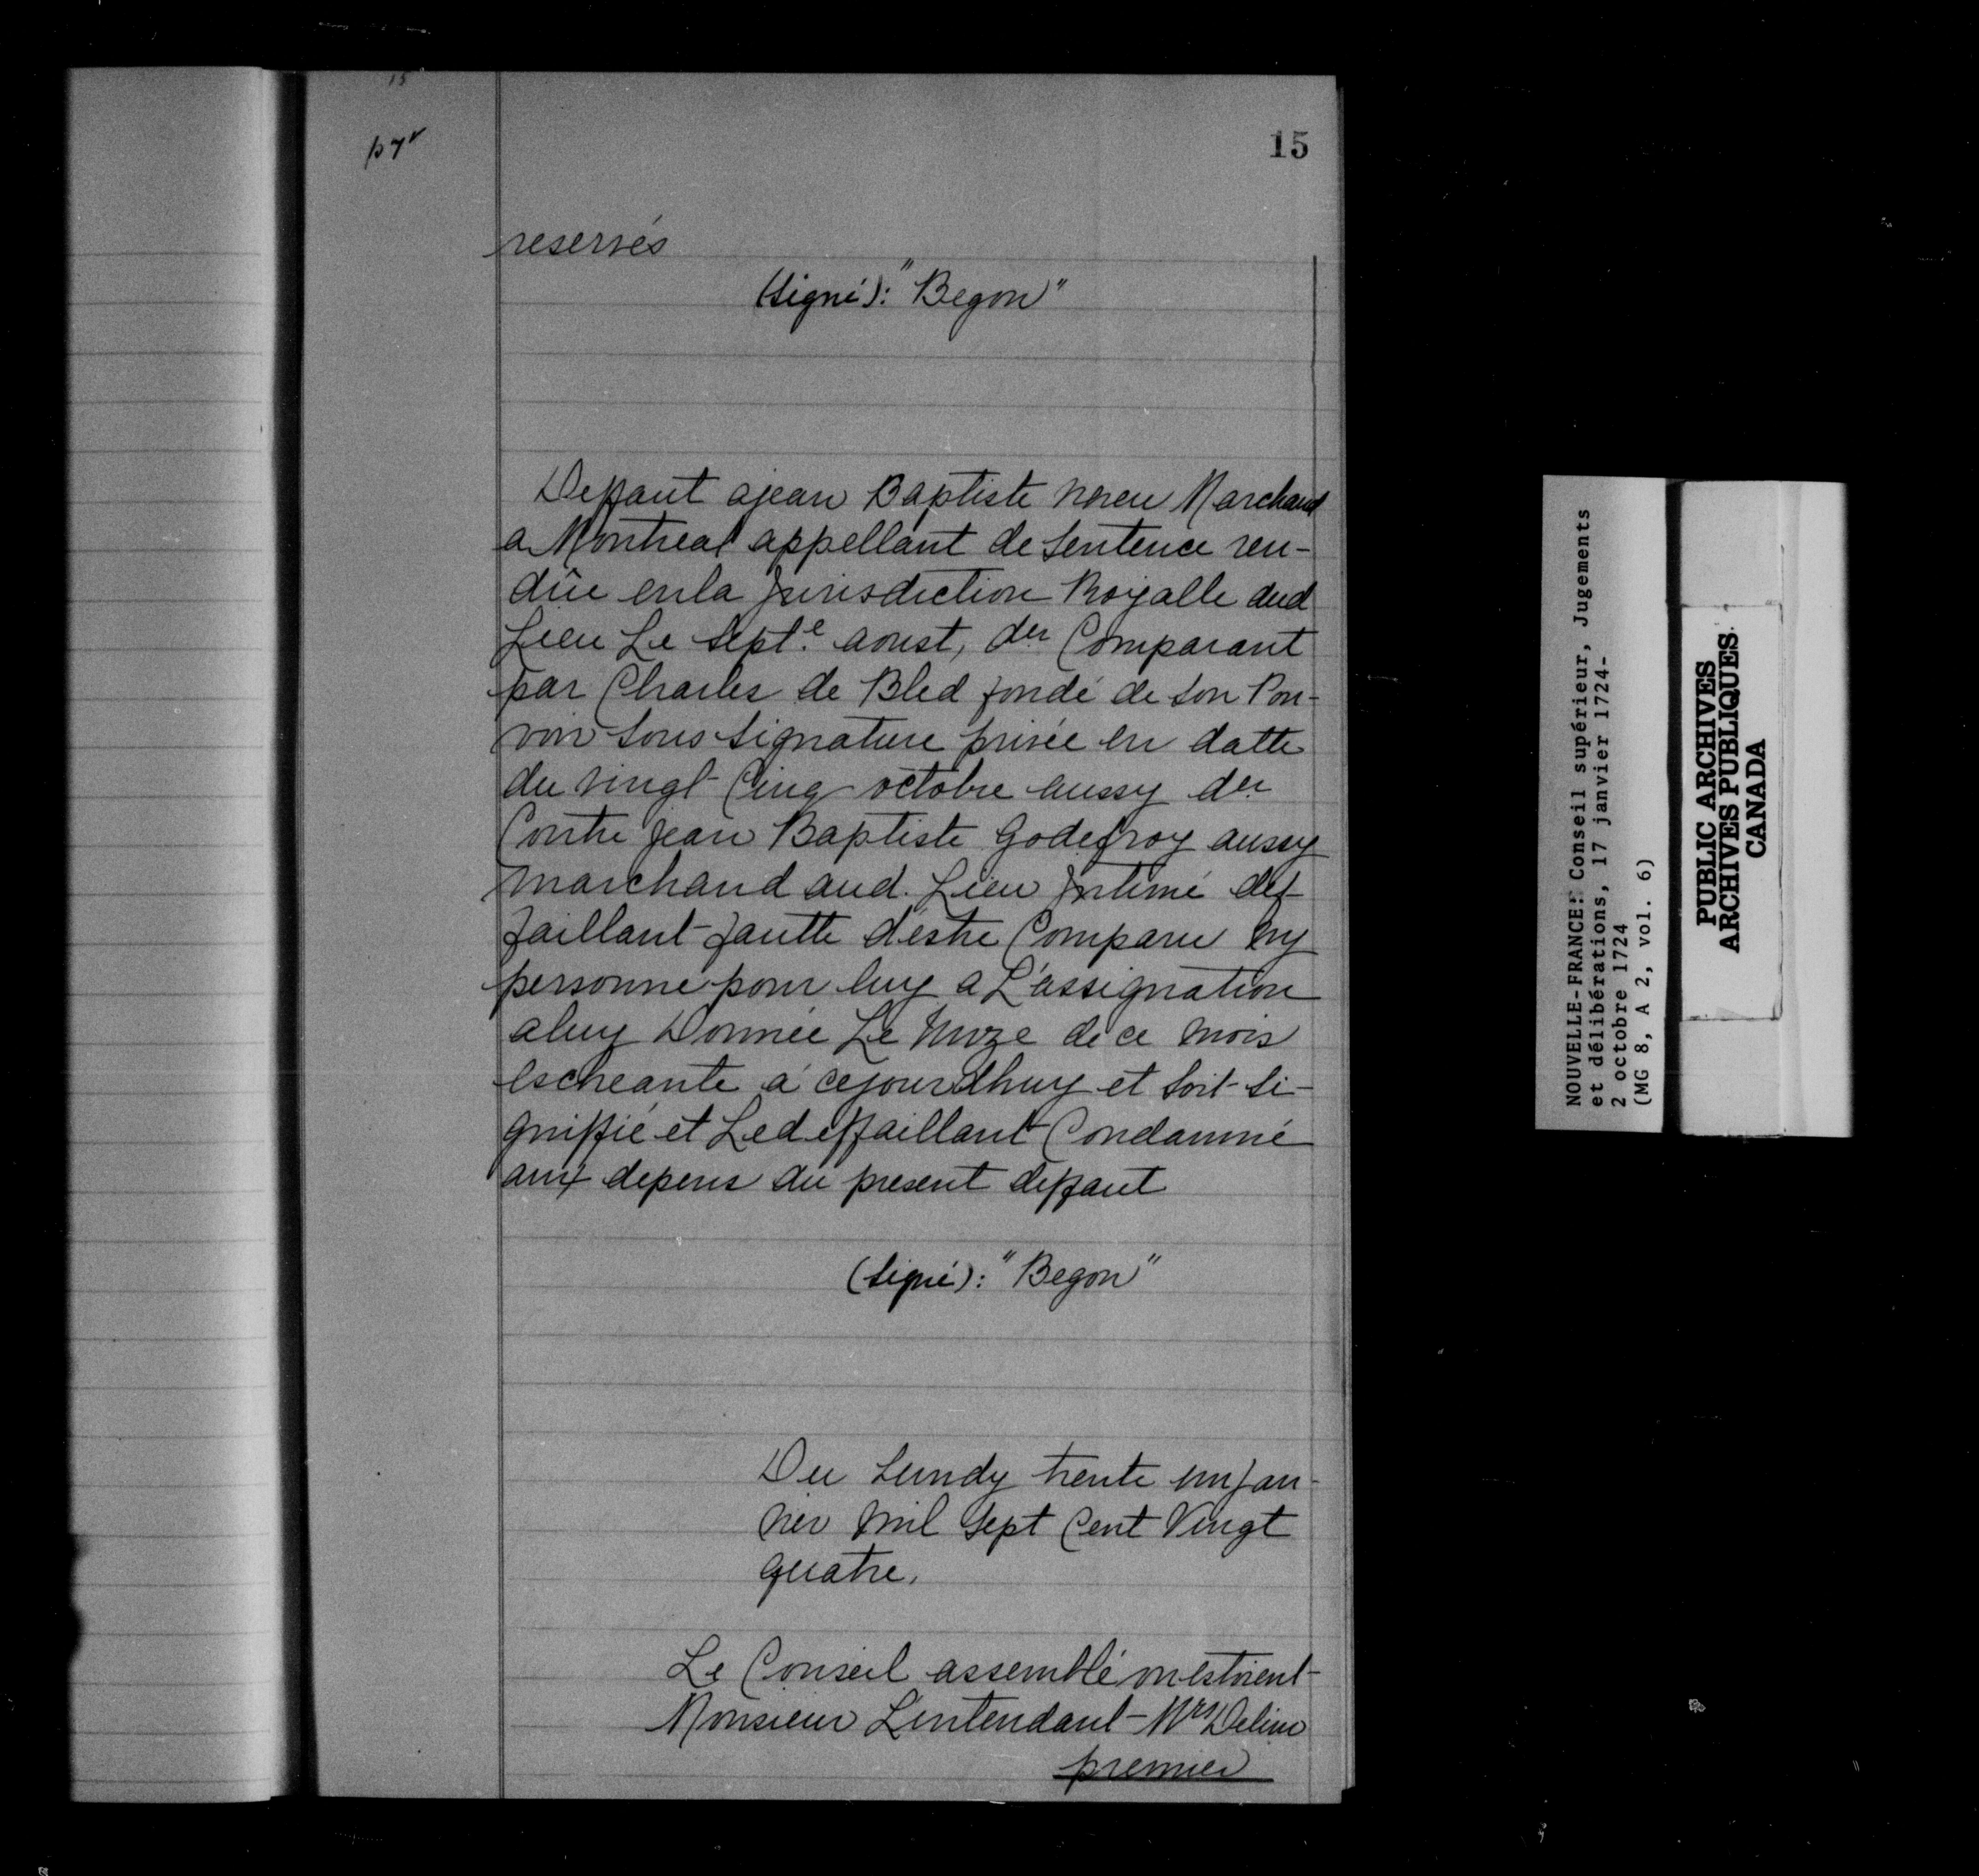 15
p 7v
15
reservés
(Signé): "Begon"
Deffaut ajean Baptiste Marchand
a Montreal appellant de Sentence ren-
düe enla Jurisdiction Royalle dud
Lieu Le Sept.e aoust, der Comparant
par Charles de Bled fondé de son Pou-
voir sous signature privée en datte
du vingt Cinq octobre aussy der
Contre Jean Baptiste Godefroy aussy
marchand aud. Lieu Intimé def-
faillant fautte d'estre Comparu ny
personne pour luy a L'assignation
aluy Donnée Le Unze de ce mois
escheante a cejourdhuy et soit si-
gniffié et Ledeffaillant Condamné
aux depens du present deffaut
(Signé): "Begon"
Du Lundy trente un Jan-
vier mil Sept Cent Vingt
quatre.
Le Conseil assemblé ou estoient
Monsieur L'intendant Mrs Delino
premier
NOUVELLE-FRANCE: Conseil supérieur, Jugements
et délibérations, 17 janvier 1724-
2 octobre 1724
(MG 8, A 2, vol. 6)
PUBLIC ARCHIVES
ARCHIVES PUBLIQUES
CANADA